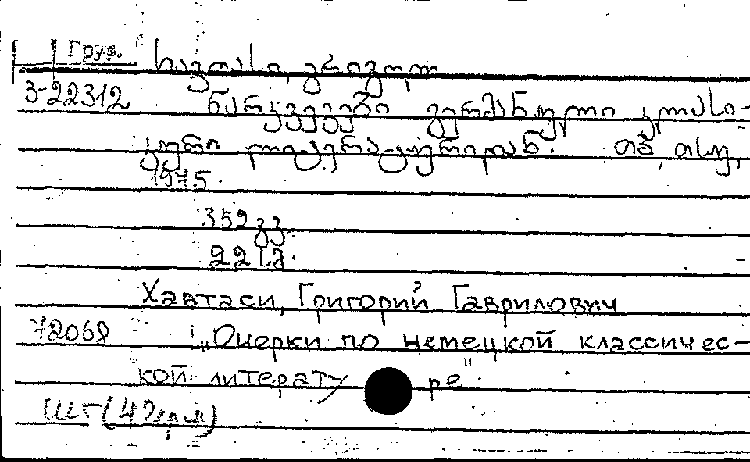 Груз.
ხავთასი, გრიგოლ
3-22312 ნარკვევები გერმანული კლასი-
კური ლიტერატურიდან. თბ., თსუ,
1975.
352 გვ.
22 სმ.
Хавтаси, Григорий Гаврилович
72068 „Очерки по немецкой классичес-
кой литературе".